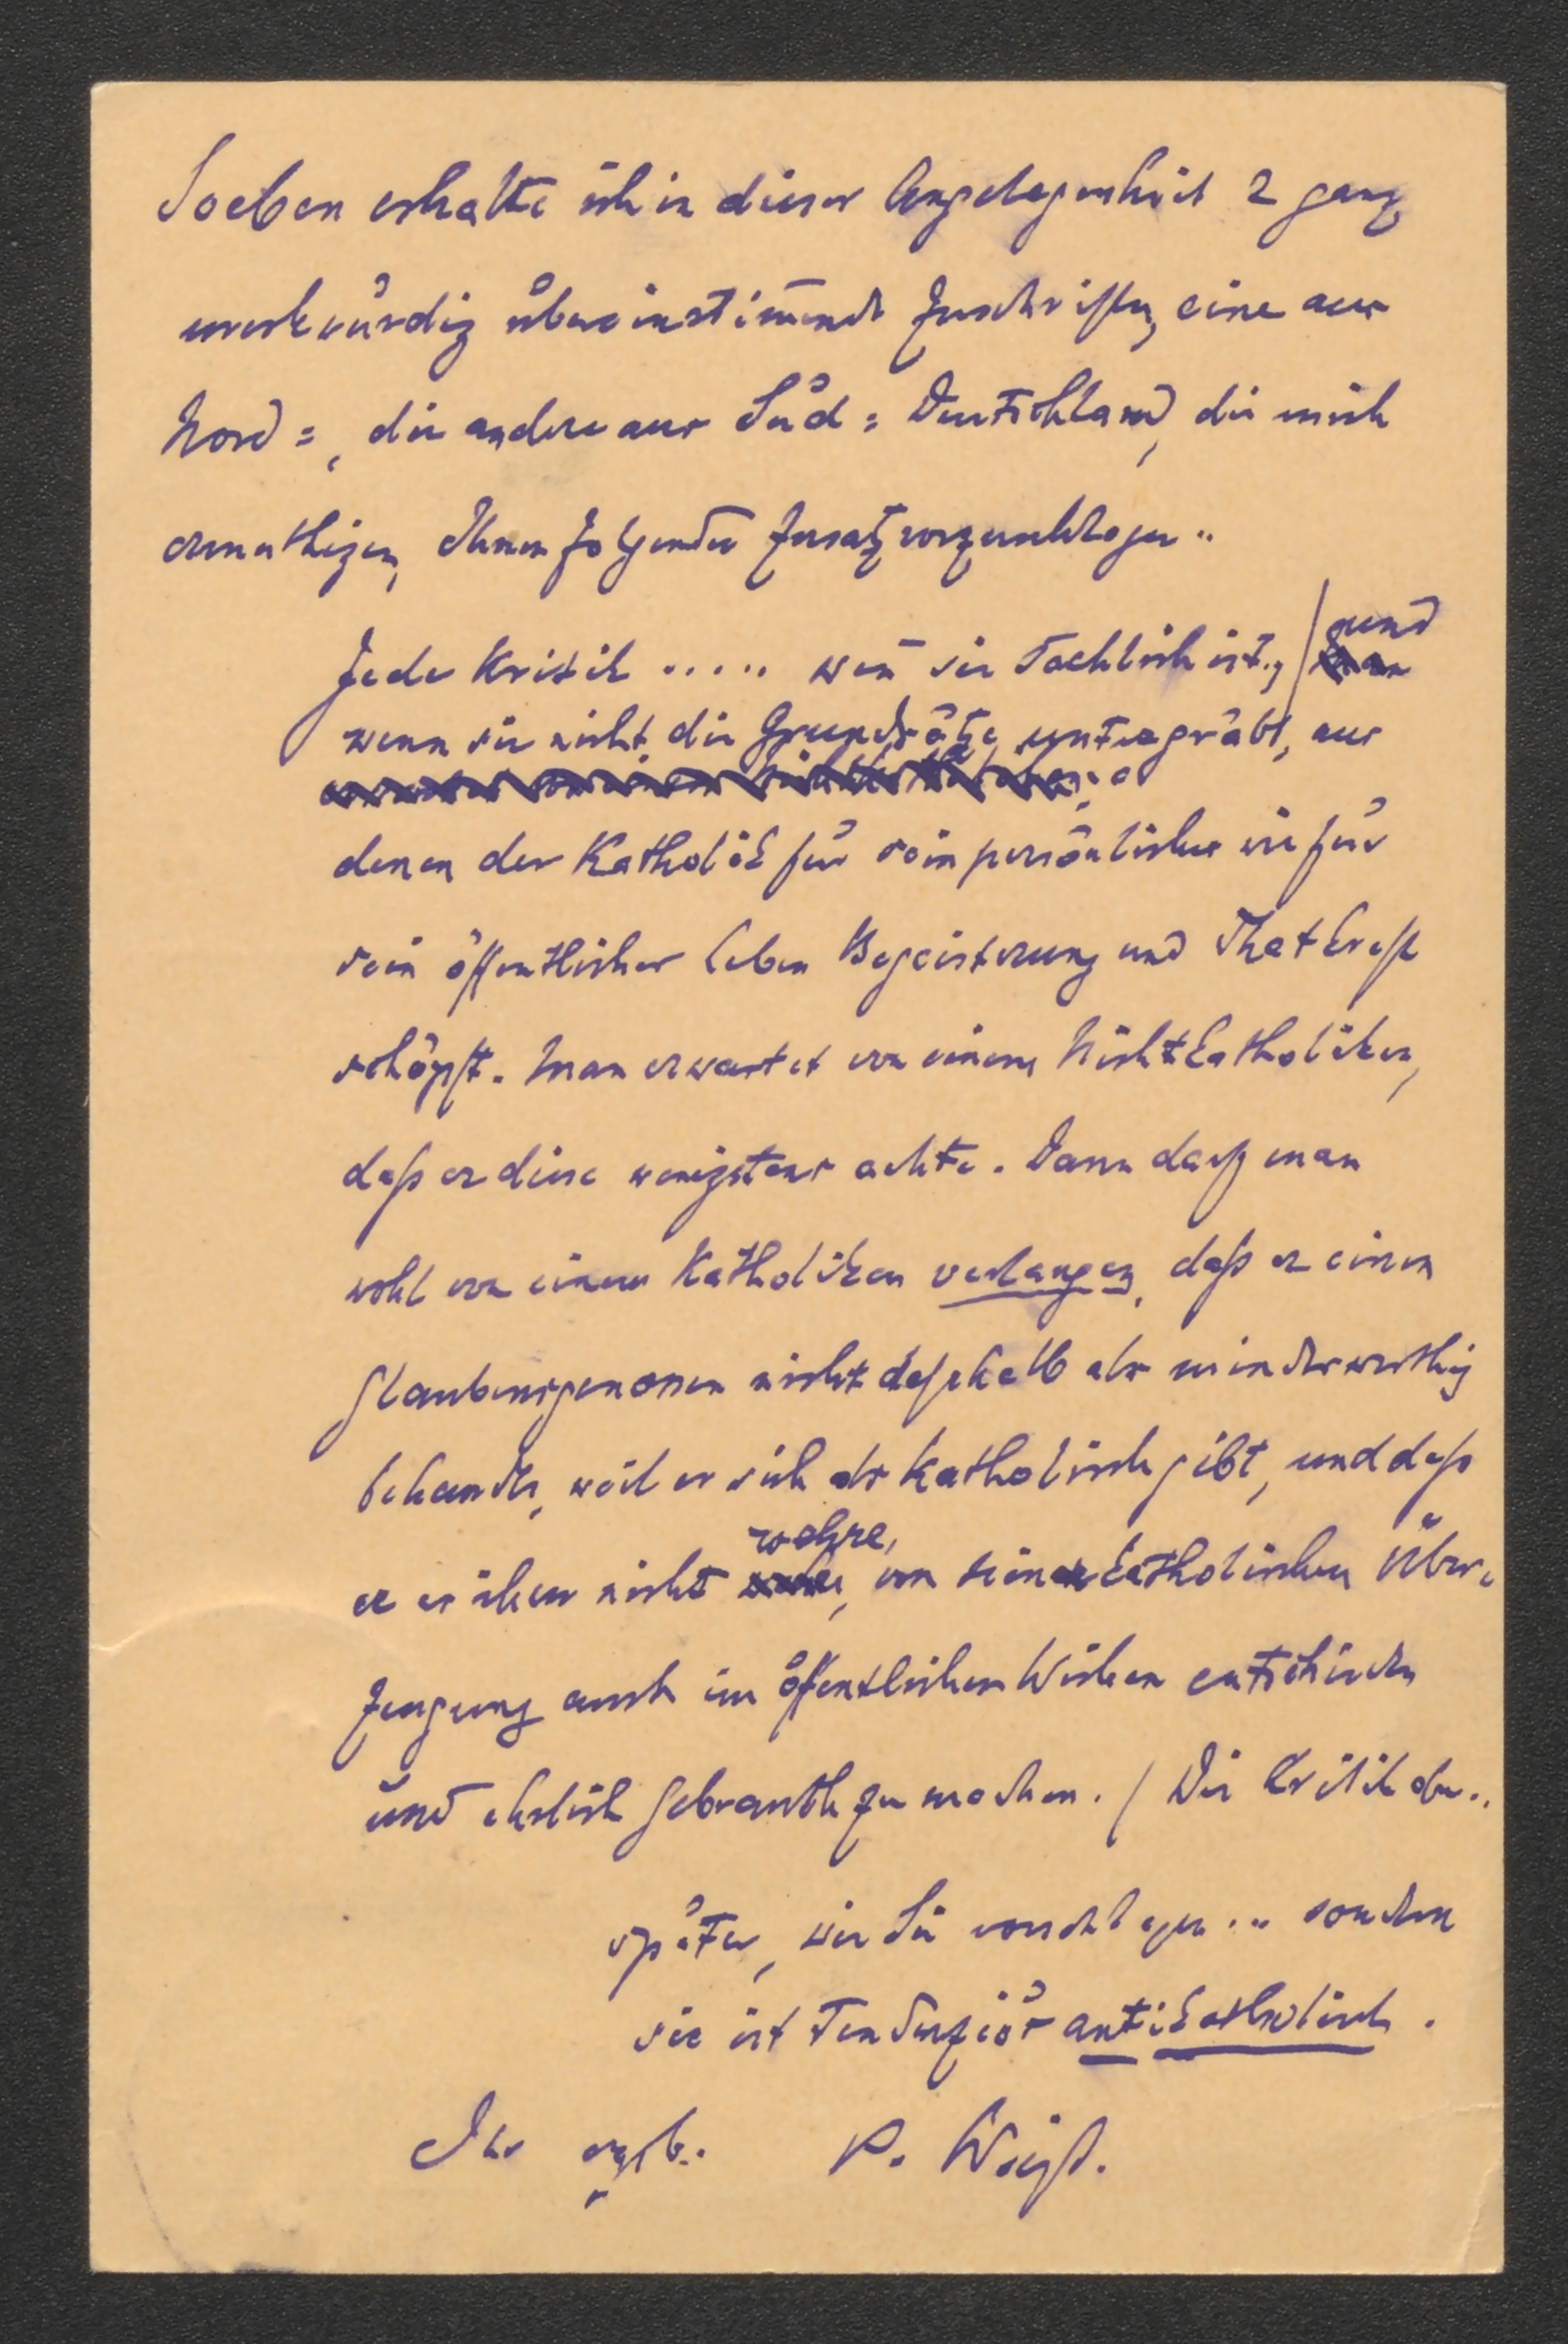 Soeben erhalte ich in dieser Angelegenheit 2 ganz
merkwürdig übereinstim̅ende Zuschriften, eine aus
Nord=, die andere aus Süd=Deutschland, die mich
ermuthigen, Ihnen folgenden Zusatz vorzuschlagen..
Jede Kritik ..... wen̅ sie sachlich ist., / und
wenn sie nicht die Grundsätze untergräbt, aus
denen der Katholik für sein persönliches wie für
sein öffentliches Leben Begeisterung und Thatkraft
schöpft. Man erwartet von einem Nichtkatholiken,
daß er diese wenigstens achte. Dann darf man
wohl von einem Katholiken verlangen, daß er einen
Glaubensgenossen nicht deßhalb als minderwerthig
behandle, weil er sich als katholisch gibt, und daß
er es ihm nicht wehre, von seiner katholischen Über=
zeugung auch im öffentlichen Wirken entschieden
und ehrlich Gebrauch zu machen. / Die Kritik aber..
später, wie Sie vorschlagen ... sondern
sie ist tendenziös antikatholisch.
Ihr ergb. P. Weiß.